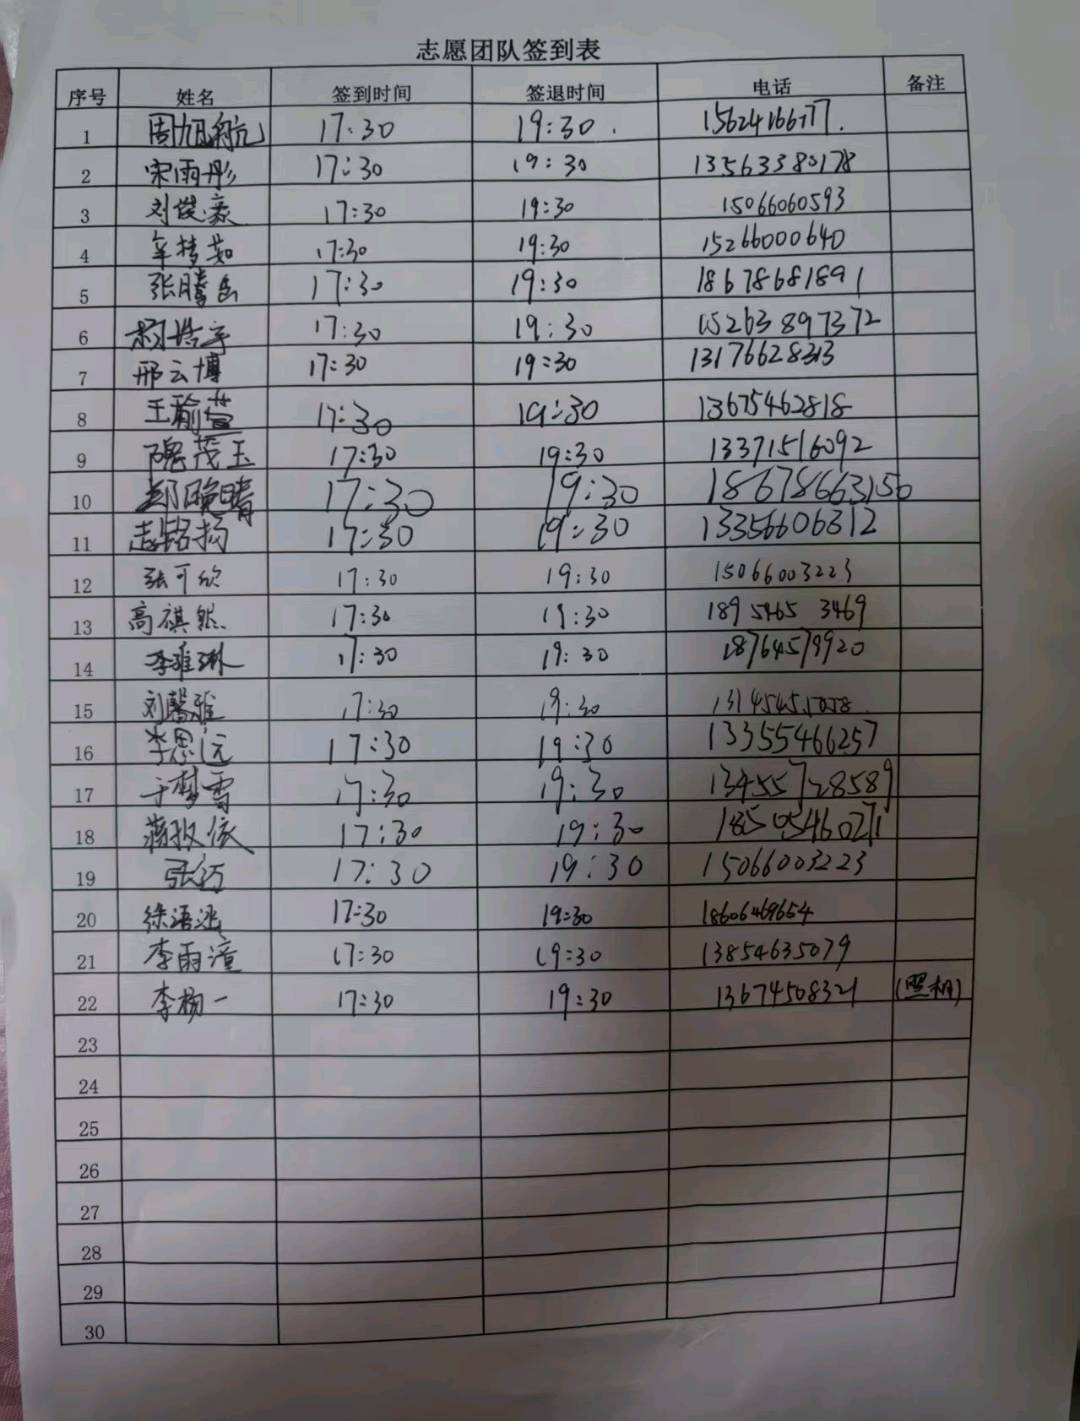 志愿团队签到表
序号 姓名 签到时间 签退时间 电话 备注
1 周旭航 17:30 19:30. 15624166777.
2 宋雨彤 17:30 19:30 13563380178
3 刘俊豪 17:30 19:30 15066060593
4 辛梦茹 17:30 19:30 15266000640
5 张腾岳 17:30 19:30 18678681891
6 17:30 19:30 15263897372
7 邢云博 17:30 19:30 13176628313
8 王瑜萱 17:30 19:30 13675462818
9 隗茂玉 17:30 19:30 13371516092
10 郑晓晴 17:30 19:30 18678663150
11 17:30 19:30 13356606312
12 张可欣 17:30 19:30 15066003223
13 高祺然 17:30 19:30 189 5465 3469
14 李雅琳 17:30 19:30 18764579920
15 刘馨雅 17:30 19:30
16 李思远 17:30 19:30 13355466257
17 于梦雪 17:30 19:30 13455728589
18 蒋牧依 17:30 19:30 18505460271
19 17:30 19:30 15066003223
20 徐语 17:30 19:30 18606469654
21 李雨潼 17:30 19:30 13854635079
22 李杨一 17:30 19:30 13674508321 (照相)
23
24
25
26
27
28
29
30